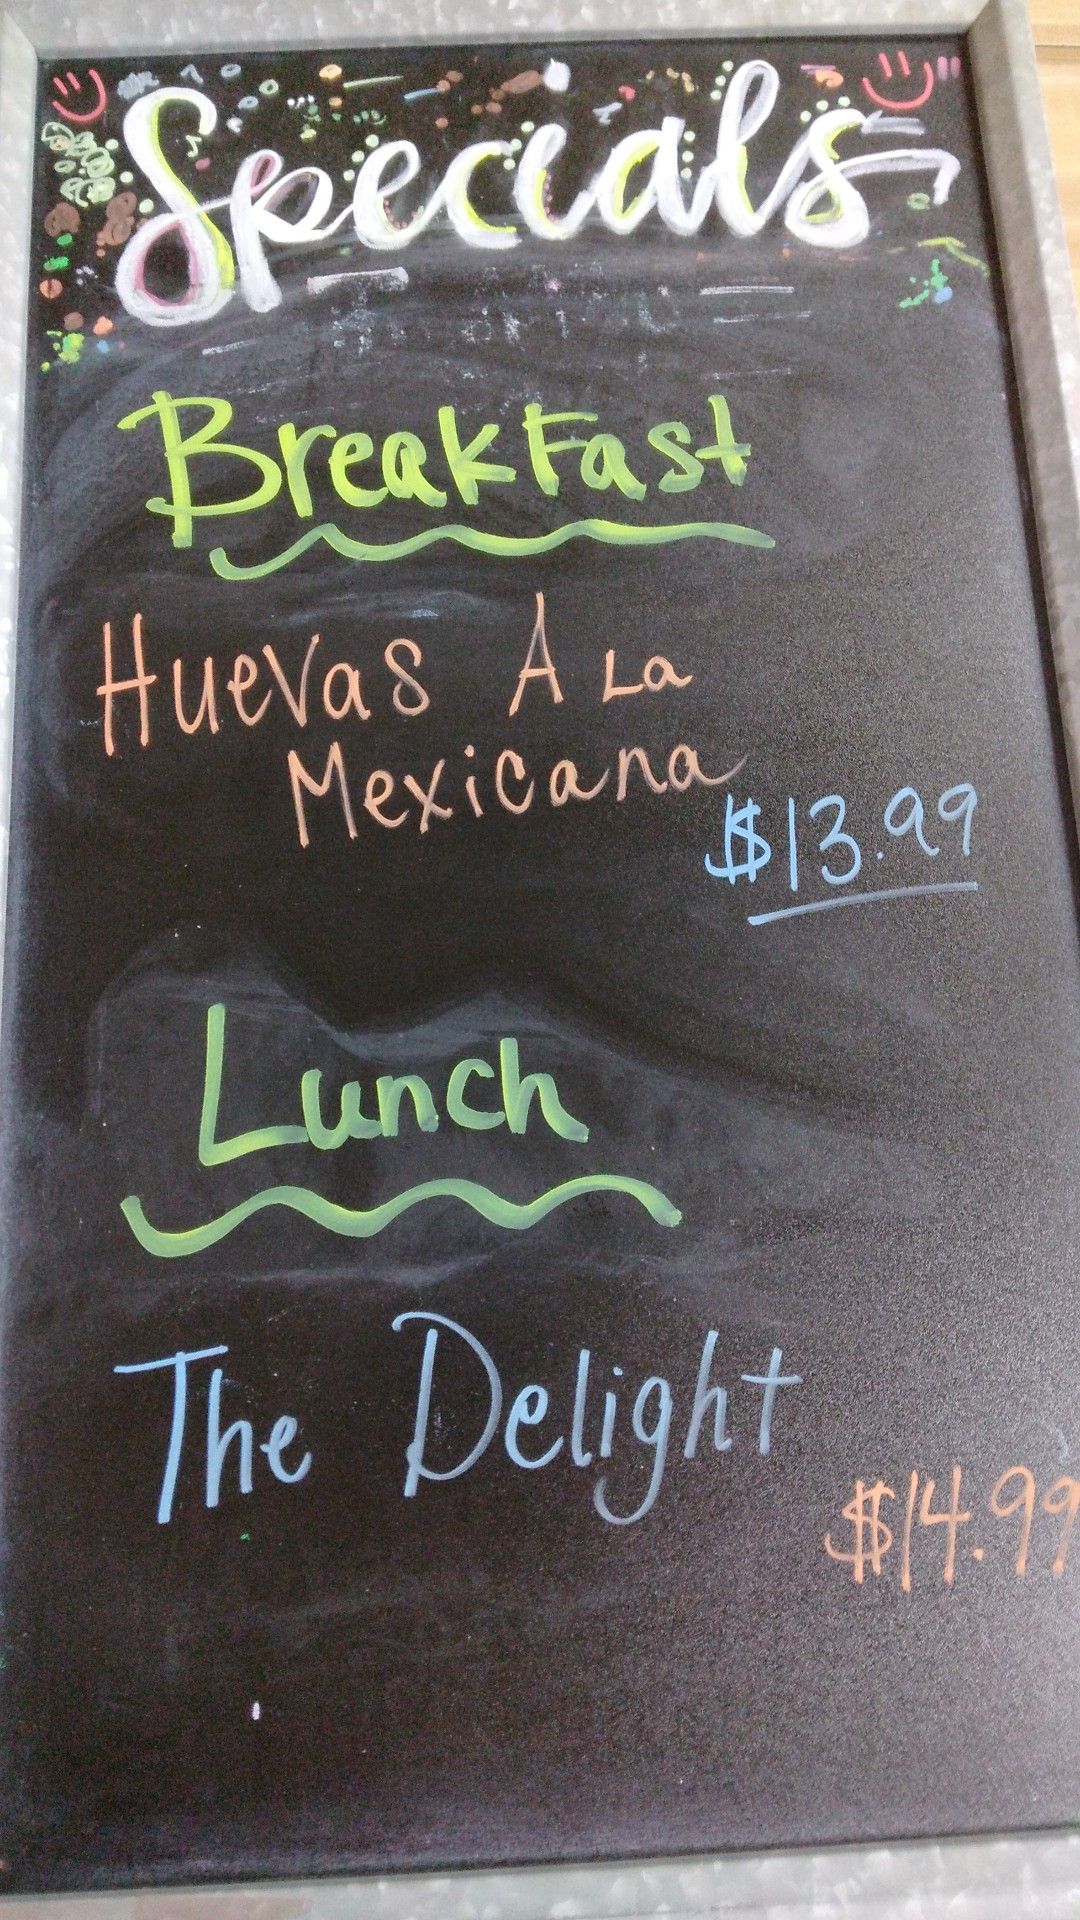 Specials
Breakfast
Huevas A La
Mexicana
$13.99
Lunch
The Delight
$14.99